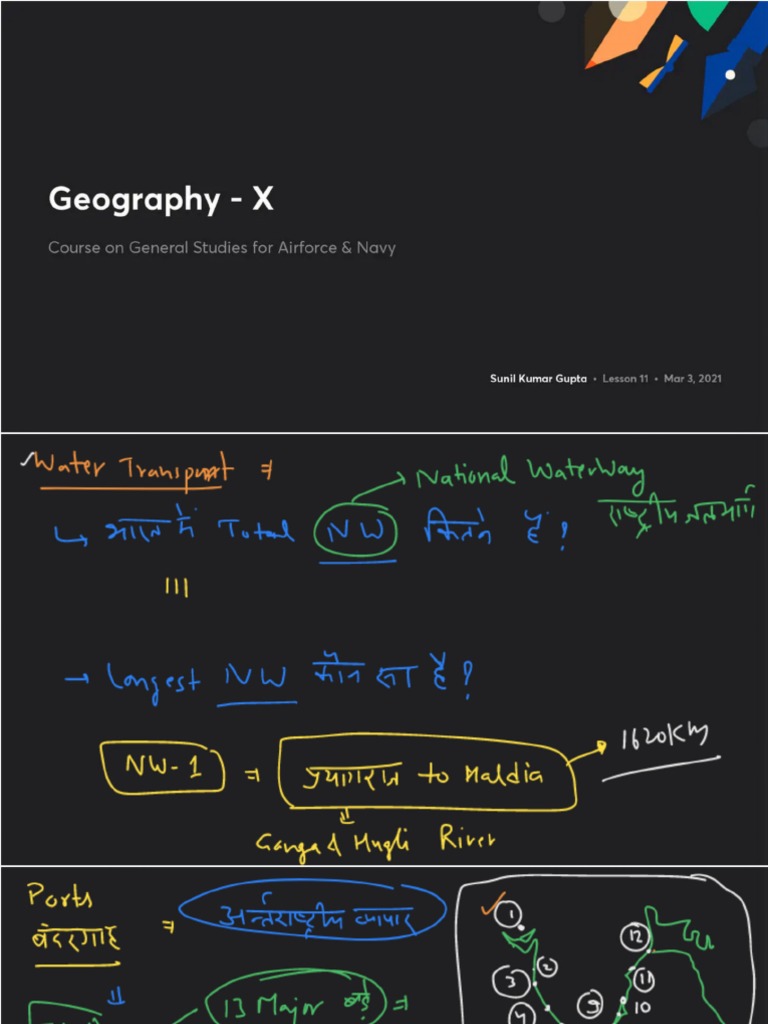 Geography - X
Course on General Studies for Airforce & Navy
Sunil Kumar Gupta • Lesson 11 • Mar 3, 2021
Water Transport ⇒
National WaterWay
राष्ट्रीय जलमार्ग
↳ भारत में Total NW कितने हैं?
111
→ Longest NW कौन सा है?
1620KM
NW-1 ⇒ प्रयागराज to Haldia
Ganga & Hugli River
Ports
बंदरगाह ⇒ अन्तर्राष्ट्रीय व्यापार
13 Major बड़े ⇒
1
12
3 2
11
9 10
4